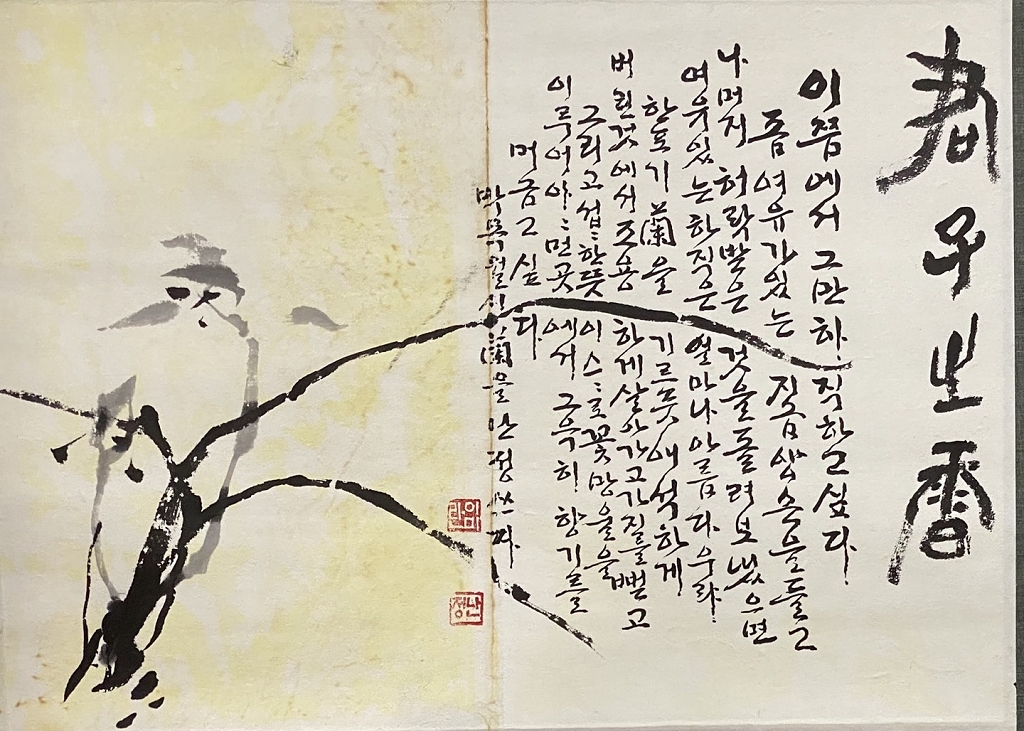 君子生香
이쯤에서 그만 하직하고 싶다.
좀 여유가 있는 지금 양손을 들고
나머지 허락받은 것을 돌려보냈으면
여유있는 하직은 얼마나 아름다우랴.
한포기 蘭을 기르듯 애석하게
버린것에서 조용하게 살아가고 가지를 뻗고
그리고 섭〃한 뜻이 스〃로 꽃망울을
이루어 아〃 먼곳에서 그윽히 향기를
머금고 싶다.
박목월 시 蘭을 난정 쓰다.
이미란
난정